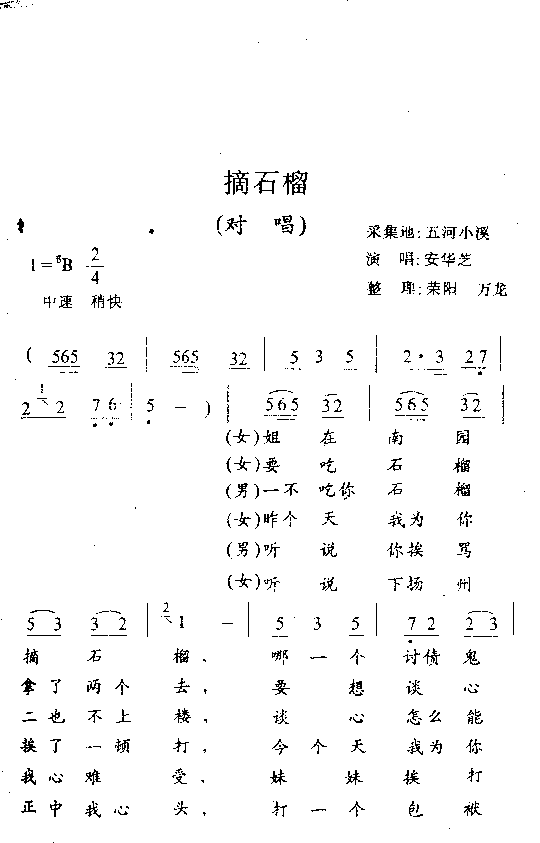 摘石榴
(对 唱)
采集地:五河小溪
1=ᵇB 2/4
演 唱:安华芝
中速 稍快
整 理:荣阳 万龙
( 565 32 | 565 32 | 5 3 5 | 2· 3 27 |
2 7 6 | 5 — ) | 565 32 | 565 32 |
(女)姐 在 南 园
(女)要 吃 石 榴
(男)一不 吃你 石 榴
(女)昨个 天 我为 你
(男)听 说 你挨 骂
(女)听 说 下扬 州
5 3 3 2 | 1 — | 5 3 5 | 7 2 2 3
摘 石 榴、 哪 一 个 讨债 鬼
拿了 两个 去, 要 想 谈 心
二也 不上 楼, 谈 心 怎么 能
挨了 一顿 打, 今 个 天 我为 你
我心 难 受, 妹 妹 挨 打
正中 我心 头, 打 一 个 包 袱